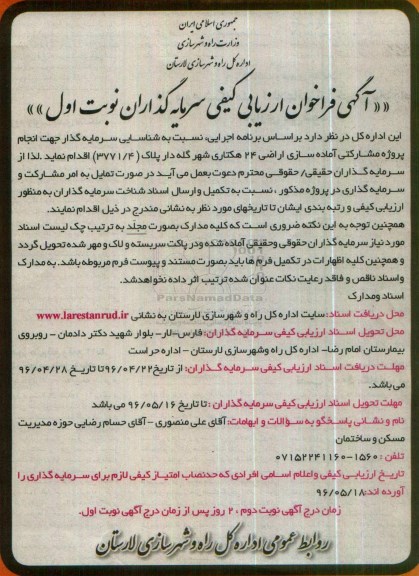 جمهوری اسلامی ایران
وزارت راه و شهرسازی
اداره کل راه و شهرسازی لارستان
«« آگهی فراخوان ارزیابی کیفی سرمایه گذاران نوبت اول »»
این اداره کل در نظر دارد بر اساس برنامه اجرایی، نسبت به شناسایی سرمایه گذار جهت انجام
پروژه مشارکتی آماده سازی اراضی ۲۴ هکتاری شهر گله دار پلاک (۳۷۷۱/۴) اقدام نماید .لذا از
سرمایه گذاران حقیقی/ حقوقی محترم دعوت بعمل می آید در صورت تمایل به امر مشارکت و
سرمایه گذاری در پروژه مذکور ، نسبت به تکمیل و ارسال اسناد شناخت سرمایه گذاران به منظور
ارزیابی کیفی و رتبه بندی ایشان تا تاریخهای مورد نظر به نشانی مندرج در ذیل اقدام نمایند.
همچنین توجه به این نکته ضروری است که کلیه مدارک بصورت مجلد به ترتیب چک لیست اسناد
مورد نیاز سرمایه گذاران حقوقی وحقیقی آماده شده ودر پاکت سربسته و لاک و مهر شده تحویل گردد
و همچنین کلیه اظهارات در تکمیل فرم ها باید بصورت مستند و پیوست فرم مربوطه باشد. به مدارک
واسناد ناقص و فاقد رعایت نکات عنوان شده ترتیب اثر داده نخواهدشد.
ParsNamadData
اسناد ومدارک
محل دریافت اسناد: سایت اداره کل راه و شهرسازی لارستان به نشانی www.larestanrud.ir
محل تحویل اسناد ارزیابی کیفی سرمایه گذاران: فارس-لار- بلوار شهید دکتر دادمان - روبروی
بیمارستان امام رضا- اداره کل راه وشهرسازی لارستان - اداره حراست
مهلت دریافت اسناد ارزیابی کیفی سرمایه گذاران: از تاریخ ۹۶/۰۴/۲۲ تا تاریخ ۹۶/۰۴/۲۸
می باشد.
مهلت تحویل اسناد ارزیابی کیفی سرمایه گذاران : تا تاریخ ۹۶/۰۵/۱۶ می باشد
نام و نشانی پاسخگو به سؤالات و ابهامات: آقای علی منصوری - آقای حسام رضایی حوزه مدیریت
مسکن و ساختمان
تلفن : ۱۵۶۰-۰۷۱۵۲۲۴۱۱۶۰
تاریخ ارزیابی کیفی واعلام اسامی افرادی که حدنصاب امتیاز کیفی لازم برای سرمایه گذاری را
آورده اند: ۹۶/۰۵/۱۸
زمان درج آگهی نوبت دوم ، ۲ روز پس از زمان درج آگهی نوبت اول.
روابط عمومی اداره کل راه و شهرسازی لارستان